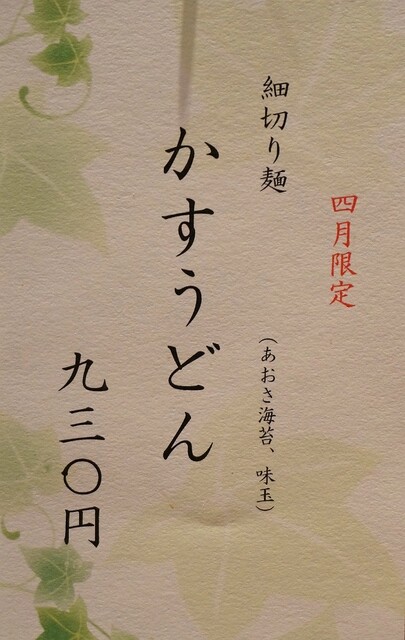 四月限定
細切り麺
(あおさ海苔、味玉)
かすうどん
九三〇円